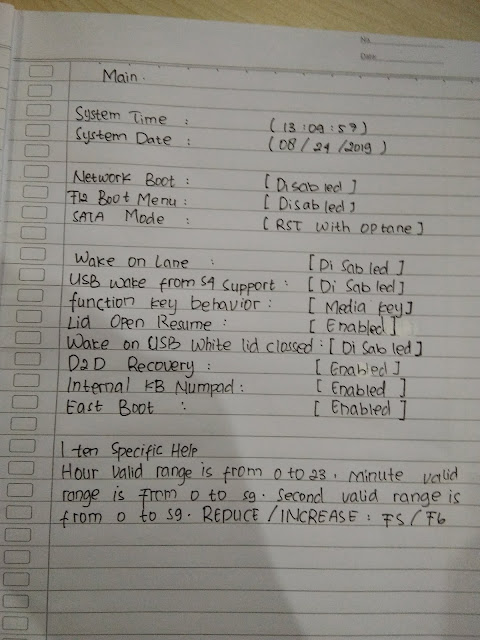 No.
Date
Main.
System Time : (13:09:57)
System Date : (08/24/2019)
Network Boot : [Disabled]
F12 Boot Menu : [Disabled]
SATA Mode : [RST with optane]
Wake on Lane : [Disabled]
USB wake from S4 support : [Disabled]
function key behavior : [Media key]
Lid Open Resume : [Enabled]
Wake on USB white lid classed : [Disabled]
D2D Recovery : [Enabled]
Internal KB Numpad : [Enabled]
East Boot : [Enabled]
Iten Specific Help
Hour valid range is from 0 to 23. Minute valid
range is From 0 to 59. Second valid range is
from 0 to 59. REDUCE/INCREASE : F5/F6